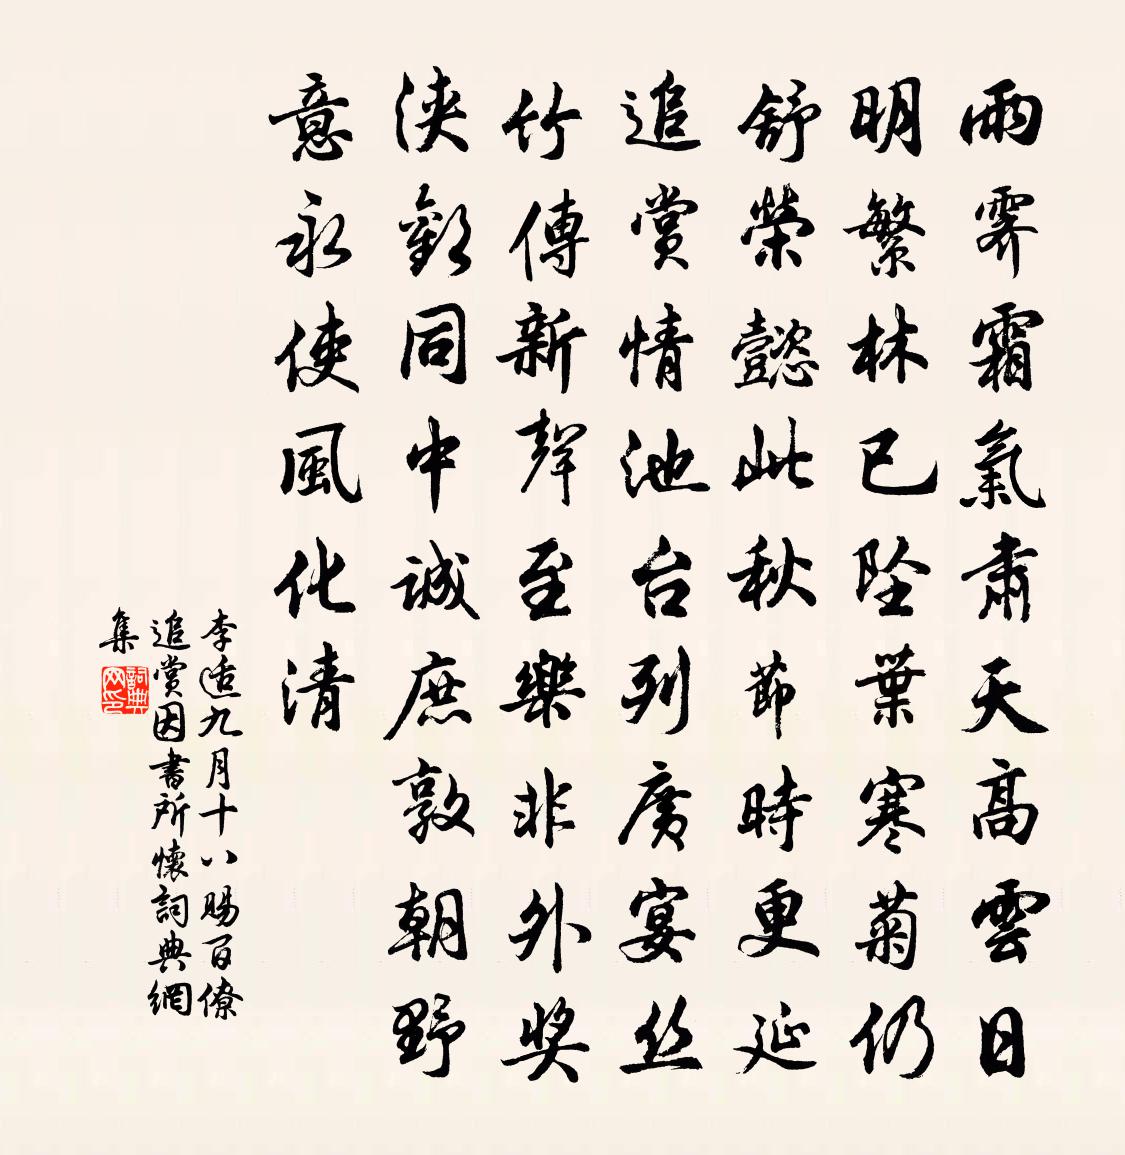 雨霽霜氣肅天高雲日
明繁林已墜葉寒菊仍
舒榮懿此秋節時更延
追賞情池台列廣宴丝
竹傳新聲至樂非外奖
浃歡同中誠庶敦朝野
意永使風化清
李适九月十八賜百僚
追賞因書所懷詞典網
集
詞典网印